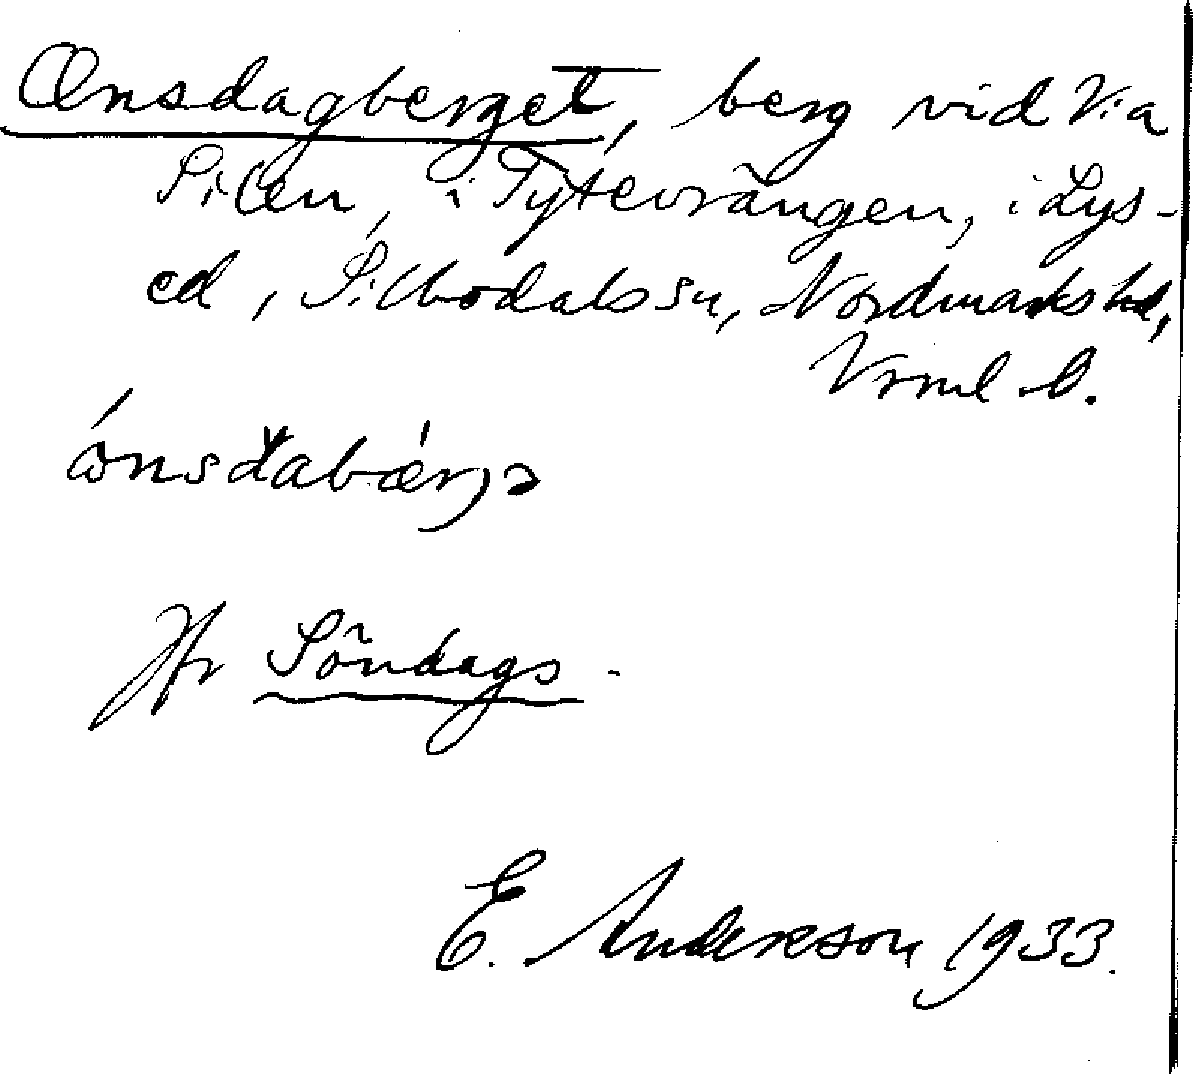 Onsdagberget, berg vid V:a
Silen, i Tytevrängen, i Lys-
ed, Silbodals sn, Nordmarks hd,
Vrml.
Jfr Söndags-
E. Andersson 1933.